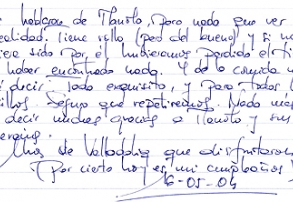 hablaron de Manolo, pero nada que ver
realidad. Tiene sello (pero del bueno) y si no
sido por el hubieramos perdido el ti
haber encontrado nada. Y de la comida
decir. Todo exquisito, y para todos
Seguro que repetiremos. Nada mas
decir muchas gracias a Manolo y sus
Una de Valladolid que disfrutaron
¡Por cierto hoy es mi cumpleaños!
6-05-04